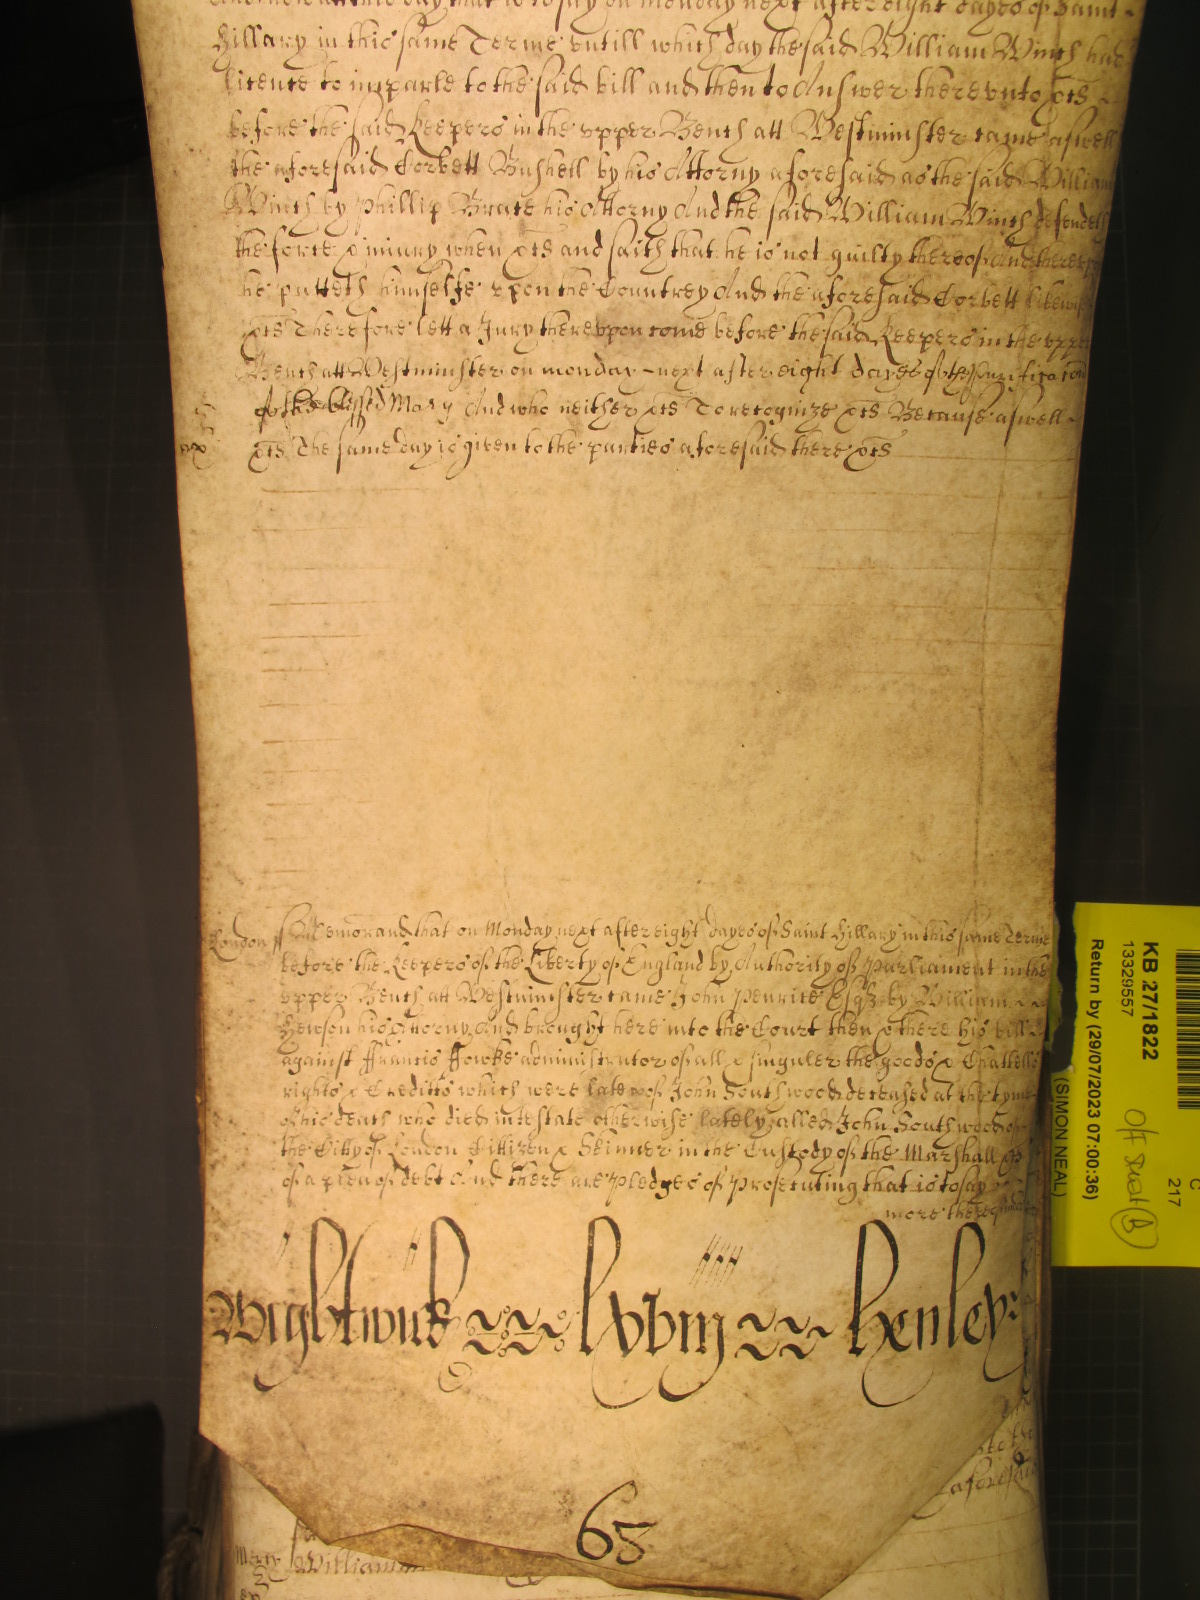 and now att this day, that is to say on monday next after eight dayes of Saint
Hillary in this same Terme untill which day the said William Winch had
licence to imparle to the said bill and then to Answer therevnto &cts
before the said Keepers in the vpper Bench att Westminster came aswell
the aforesaid Corbett Bushell by his Attorny aforesaid as the said William
Winch by Phillip Brace his Attorny And the said William Winch defendeth
the force & iniury when &cts and saith that he is not guilty thereof And therevp
he putteth himselfe vpon the Countrey And the aforesaid Corbett likewise
&cts Therefore lett a Jury therevpon come before the said Keepers in the vpper
Bench att Westminster on monday next after eight dayes of the Purificacon
of the blessed Mary And who neither &cts To recognize &cts Because aswell
&cts The same day is given to the parties aforesaid there &cts
London ss Memorand that on Monday next after eight dayes of Saint Hillary in this same Terme
before the Keepers of the Liberty of England by Authority of Parliament in the
vpper Bench att Westminster came John Penrice Esqz by William
Hewson his Attorny And brought here into the Court then & there his bill
against ffrancis ffowke administrator of all & singuler the goods & Chattells
rights & Creditts which were late of John Southwood deceased at the tyme
of his death who died intestate otherwise lately called John Southwood of
the Citty of London Cittizen & Skinner in the Custody of the Marshall &c
of a plea of debt And there are pledges of prosecuting that is to say
more the
Wightwick lxviij Henley
65
William
aforesaid
KB 27/1822
13329557
Return by (29/07/2023 07:00:36)
(SIMON NEAL)
Off Site (B)
C
217